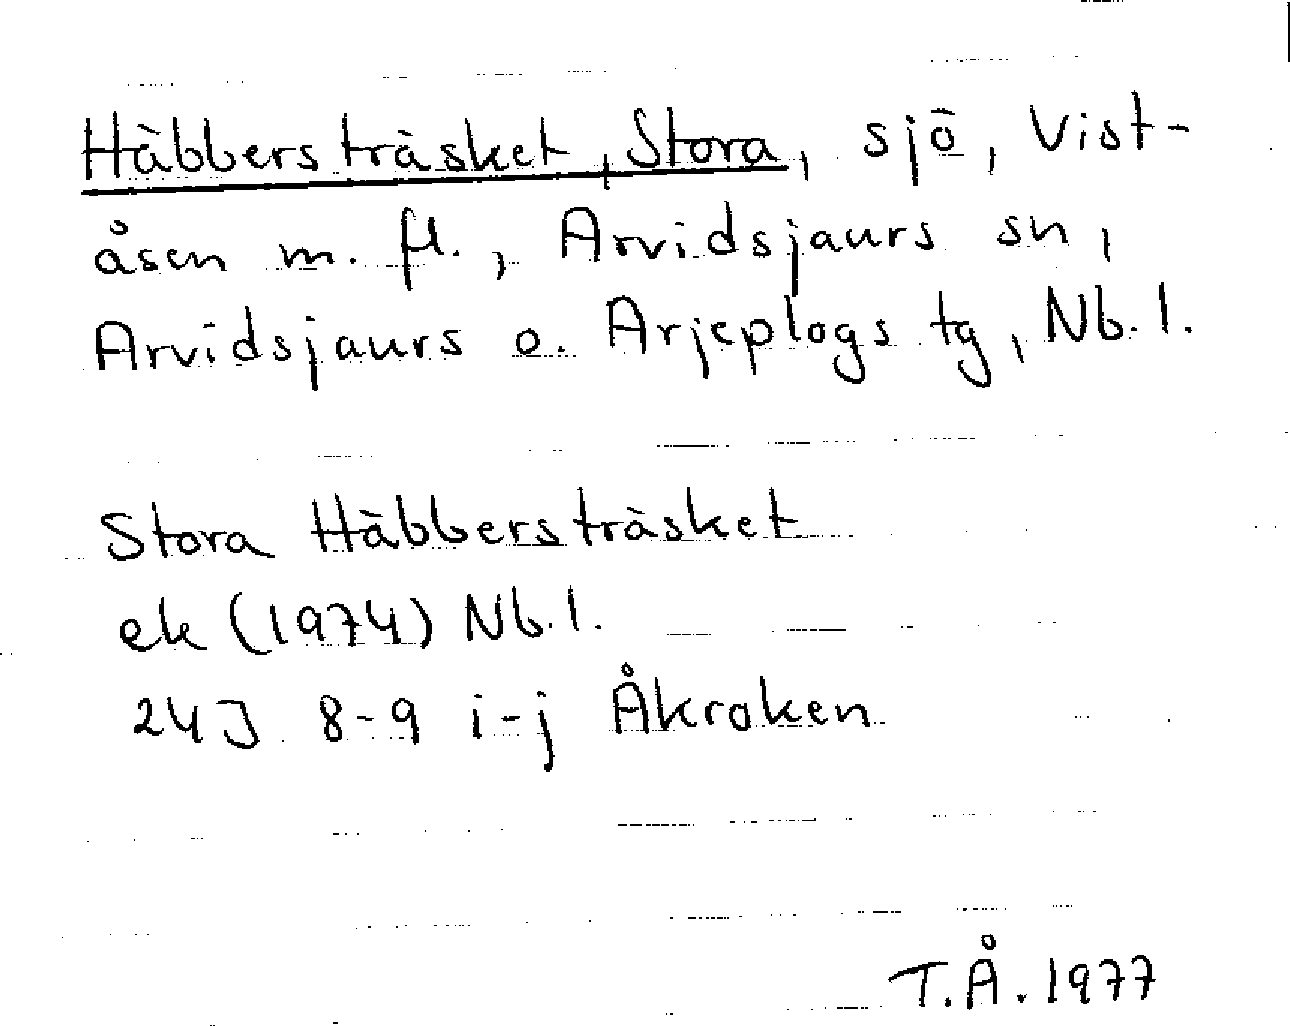 Häbbersträsket, Stora, sjö, Vist-
åsen m. fl., Arvidsjaurs sn,
Arvidsjaurs o. Arjeplogs tg, Nb. l.
Stora Häbbersträsket
ek (1974) Nb. l.
24J 8-9 i-j Åkroken
T.Å. 1977